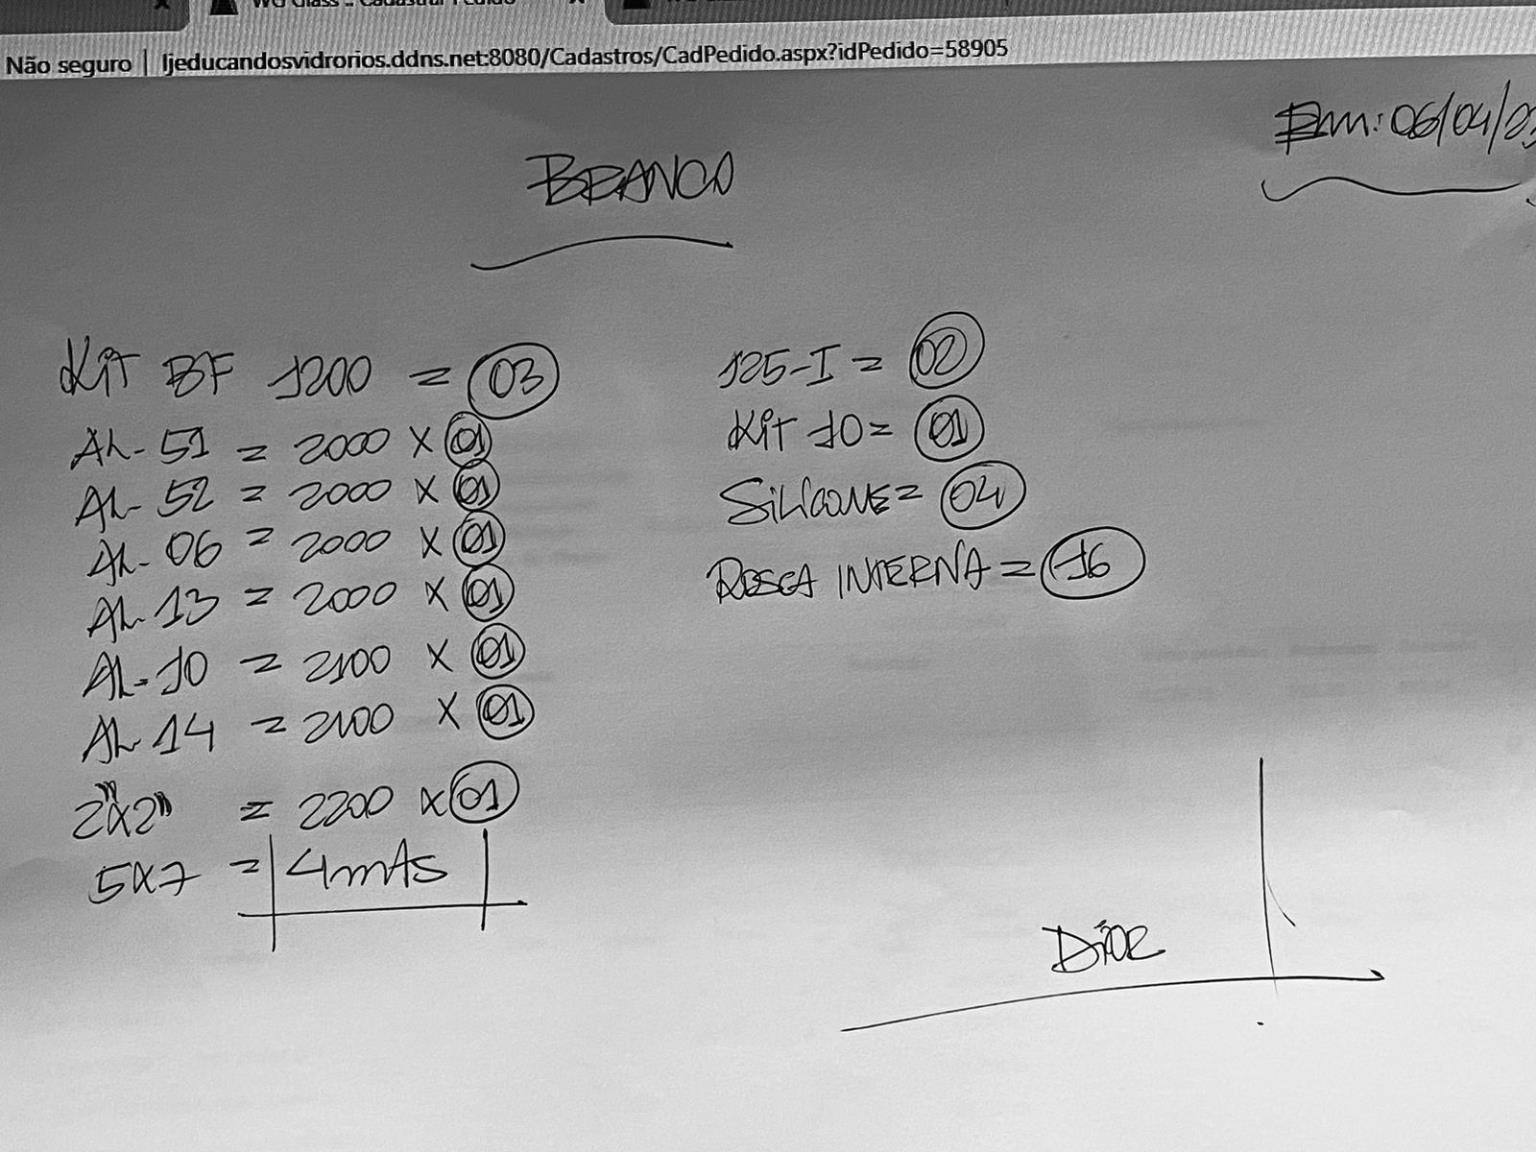 Não seguro | ljeducandosvidrorios.ddns.net:8080/Cadastros/CadPedido.aspx?idPedido=58905
Em: 06/04/23
BRANCO
Kit BF 1200 = 03
AL-51 = 2000 X 01
AL-52 = 2000 X 01
AL-06 = 2000 X 01
AL-13 = 2000 X 01
AL-10 = 2100 X 01
AL-14 = 2100 X 01
2"x2" = 2200 X 01
5x7 = 4mts
125-I = 02
Kit 10 = 01
SILICONE = 04
ROSCA INTERNA = 16